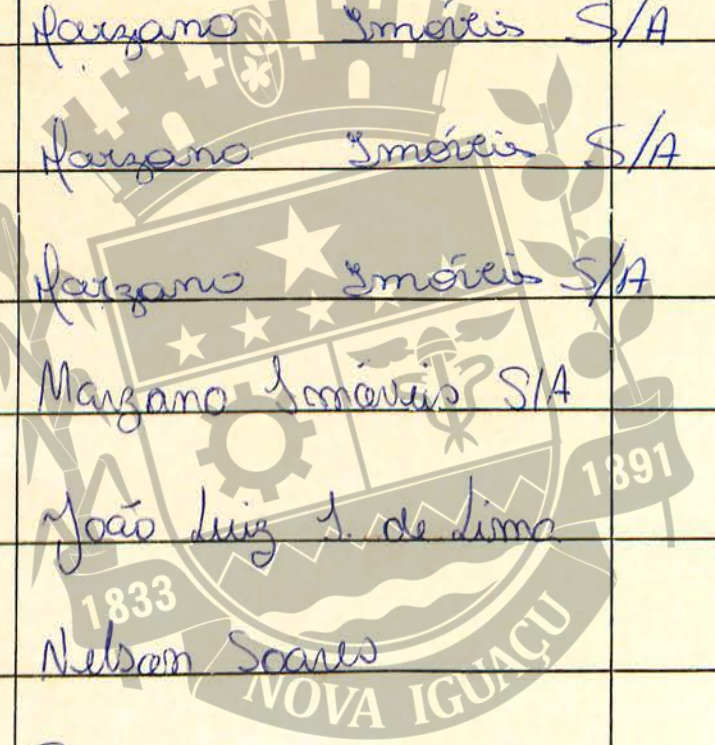 Marzano Imóveis S/A
Marzano Imóveis S/A
Marzano Imóveis S/A
Marzano Imóveis S/A
1891
João Luiz S. de Lima
1833
Nelson Soares
NOVA IGUAÇU